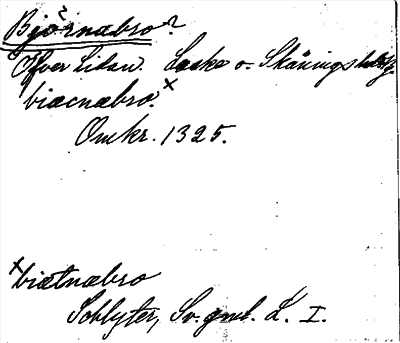 Björnabro?
Öfver Lidan. Laske o. Skånings
biæcnæbro. x
Omkr. 1325.
x biætnæbro
Schlyter, Sv. gml. L. I.